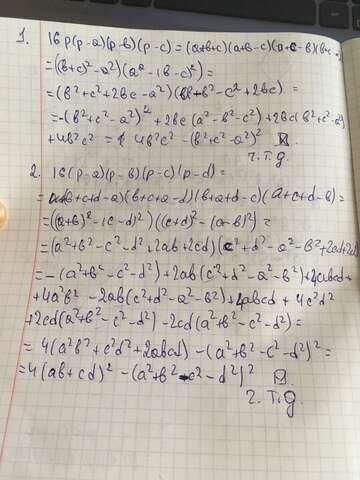 1. 16 p(p-a)(p-в)(p-c) = (a+в+c)(a+в-c)(a+c-в)(в+c
=((в+c)²-a²)(a²-(в-c)²)=
=(в²+c²+2вc-a²)(a²-в²-c²+2вc)=
=-(в²+c²-a²)²+2вc(a²-в²-c²)+2вc(в²+c²-a²)
+4в²c² = 4в²c²-(в²+c²-a²)²
ч.т.д.
2. 16(p-a)(p-в)(p-c)(p-d)=
=(в+c+d-a)(в+c+a-d)(в+a+d-c)(a+c+d-в)=
=((a+в)²-(c-d)²)((c+d)²-(a-в)²)=
=(a²+в²-c²-d²+2ab+2cd)(c²+d²-a²-в²+2ab+2cd)
=-(a²+в²-c²-d²)+2ab(c²+d²-a²-в²)+4abcd+
+4a²в²-2ab(c²+d²-a²-в²)+4abcd+4c²d²
+2cd(a²+в²-c²-d²)-2cd(a²+в²-c²-d²)=
=4(a²в²+c²d²+2abcd)-(a²+в²-c²-d²)²=
=4(ab+cd)²-(a²+в²-c²-d²)²
ч.т.д.